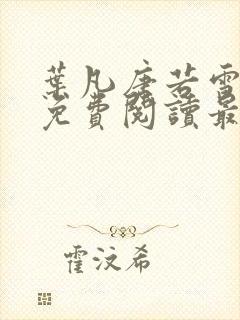 葉凡唐若雪
免費閱讀最
霍汶希